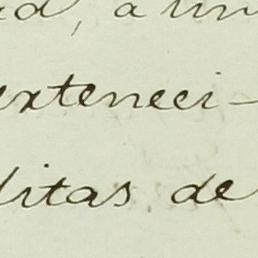 ad, a un
exteneci-
litas de